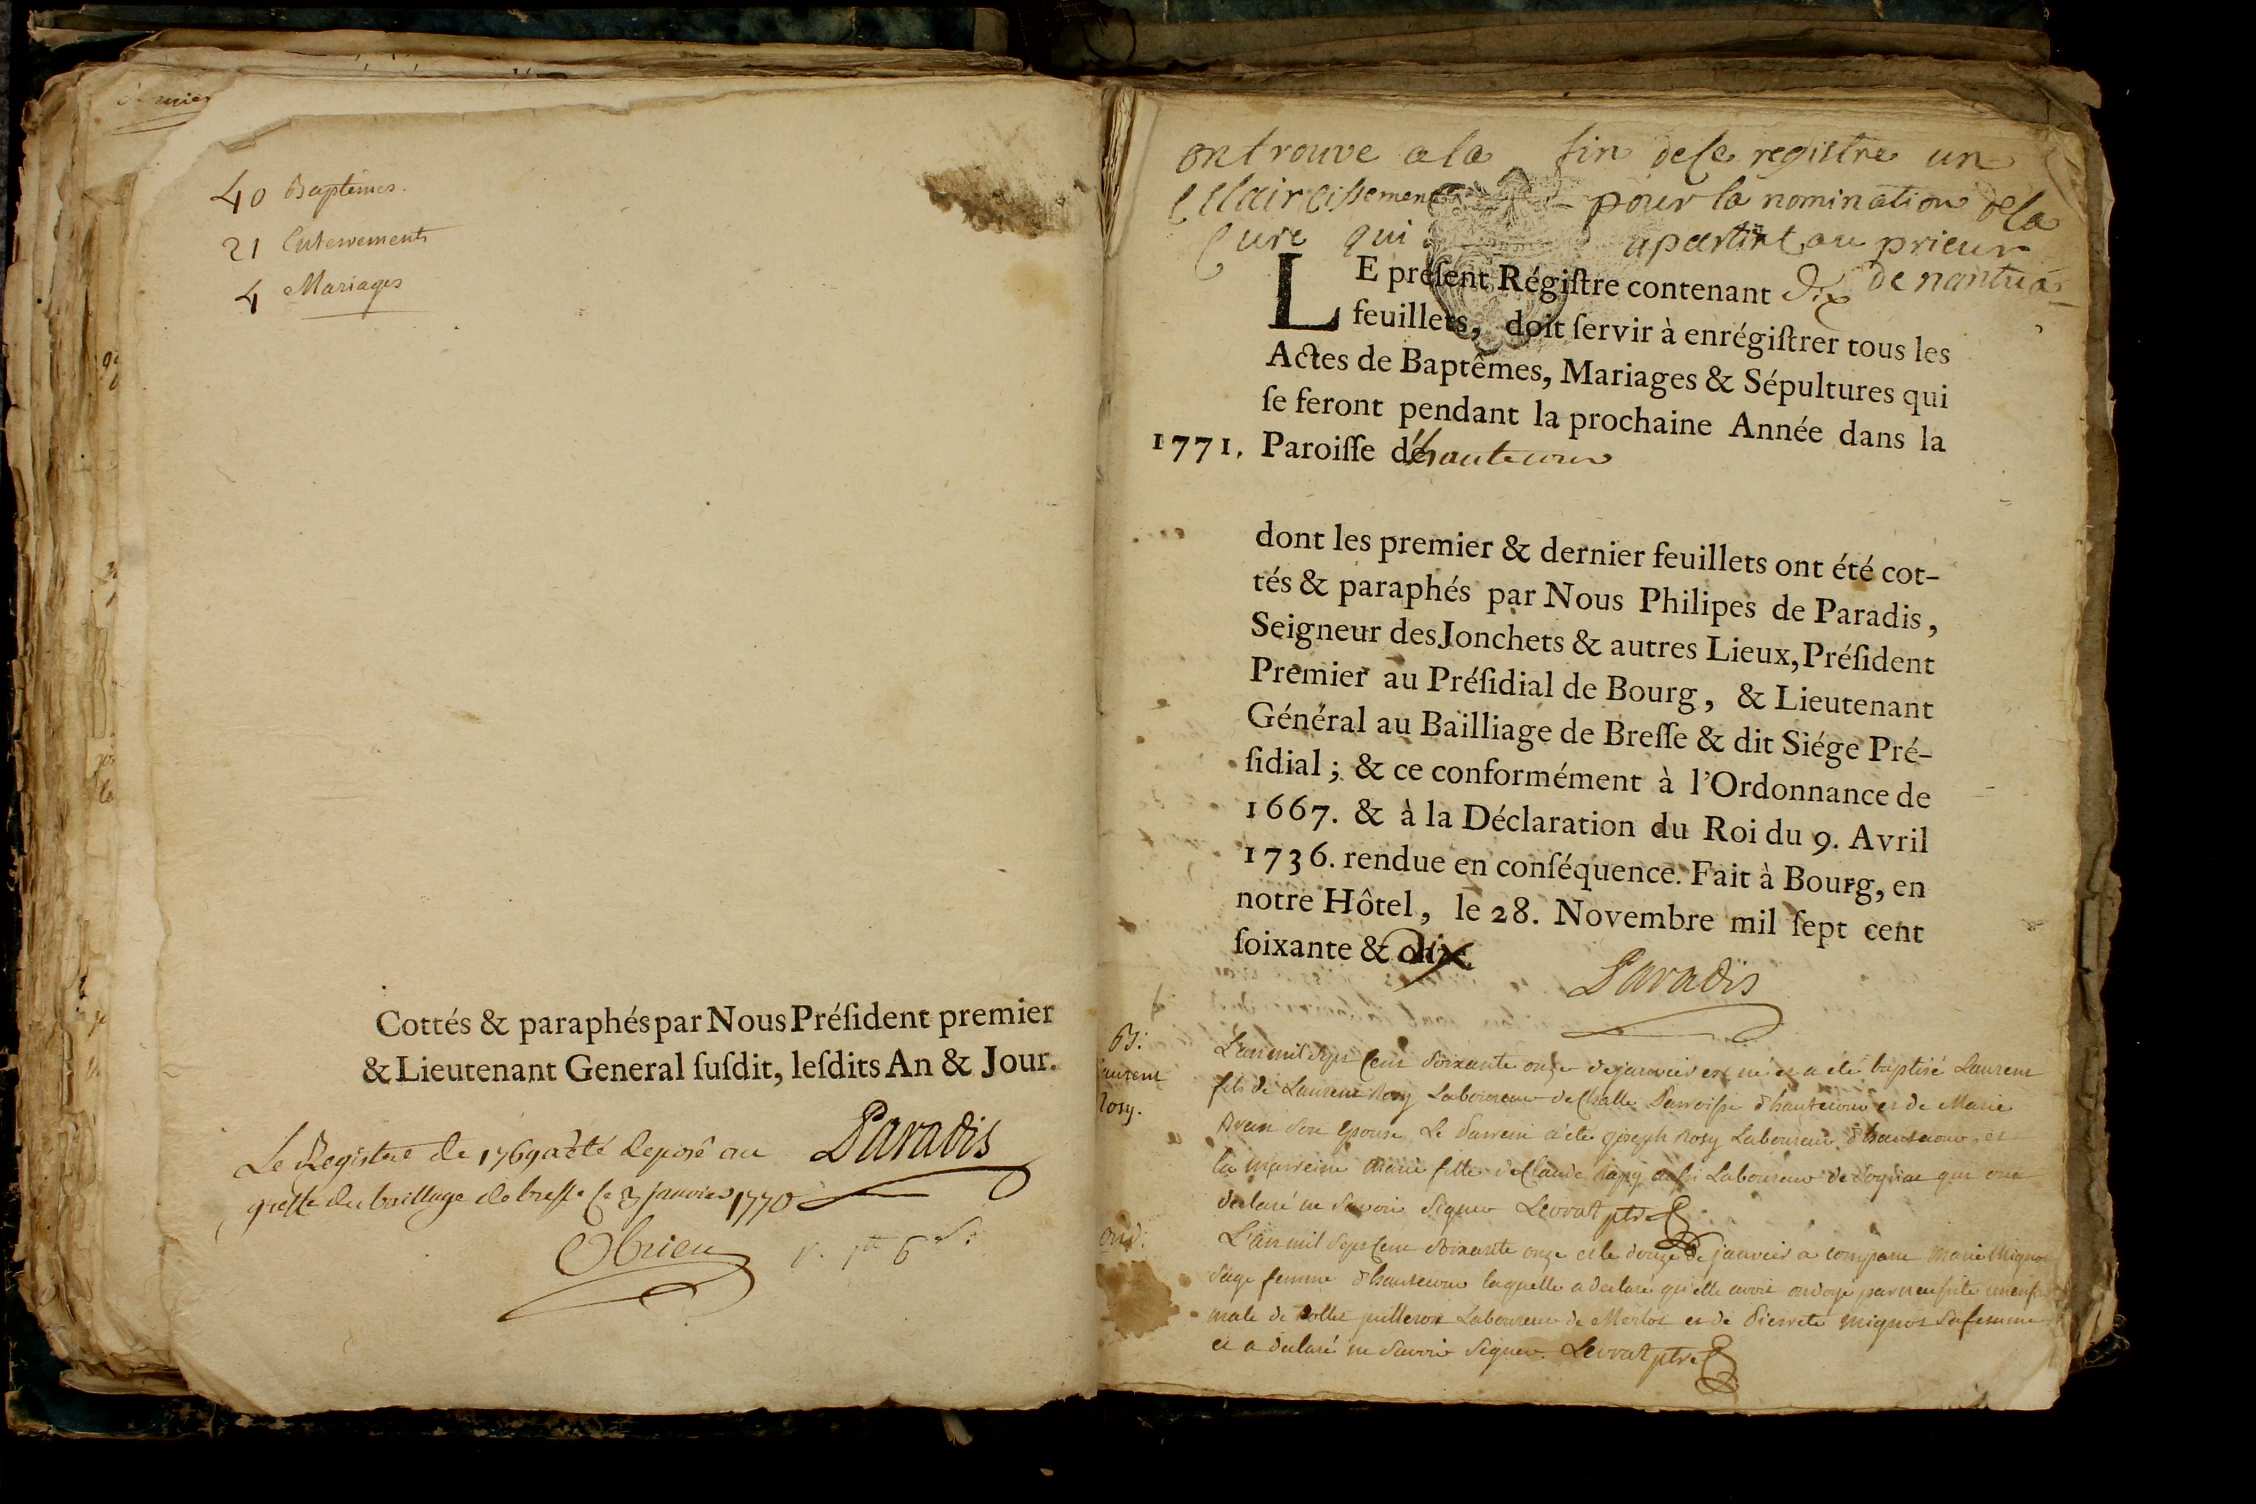 40 Baptêmes.
21 Enterrements
4 Mariages
Cottés & paraphés par Nous Préſident premier
& Lieutenant General ſuſdit, leſdits An & Jour.
Paradis
Le Registre de 1769 a été deposé au
greffe du bailliage de bresse le 3 janvier 1770
Obrien
on trouve a la fin de ce registre un
Eclaircissement pour la nomination de la
Cure qui apartint au prieur
de nantua
LE preſent Régiſtre contenant dix
feuillets, doit ſervir à enrégiſtrer tous les
Actes de Baptêmes, Mariages & Sépultures qui
ſe feront pendant la prochaine Année dans la
1771. Paroiſſe de hautecour
dont les premier & dernier feuillets ont été cot-
tés & paraphés par Nous Philipes de Paradis,
Seigneur des Jonchets & autres Lieux, Préſident
Premier au Préſidial de Bourg, & Lieutenant
Général au Bailliage de Breſſe & dit Siége Pré-
ſidial ; & ce conformément à l'Ordonnance de
1667. & à la Déclaration du Roi du 9. Avril
1736. rendue en conſéquence. Fait à Bourg, en
notre Hôtel, le 28. Novembre mil ſept cent
ſoixante & dix
Paradis
B:
Laurent
Rosy.
L'an mil sept cent soixante onze janvier est né et a été baptisé Laurent
fils de Laurent Rosy Laboureur de Challe Parroisse d'hautecour et de Marie
son Epouse Le Parrein a été joseph Rosy Laboureur d'hautecour, et
la marreine marie fille de Claude aussi Laboureur de qui ont
declaré ne savoir signer Levrat ptre
ond:
L'an mil sept cent soixante onze et le douze de janvier a comparu Marie Mignot
sage femme d'hautecour laquelle a declaré qu'elle avoit ondoyé par necessité un enfant
male de Laboureur de Merloz et de Pierrete mignot sa femme
et a declaré ne savoir signer. Levrat ptre